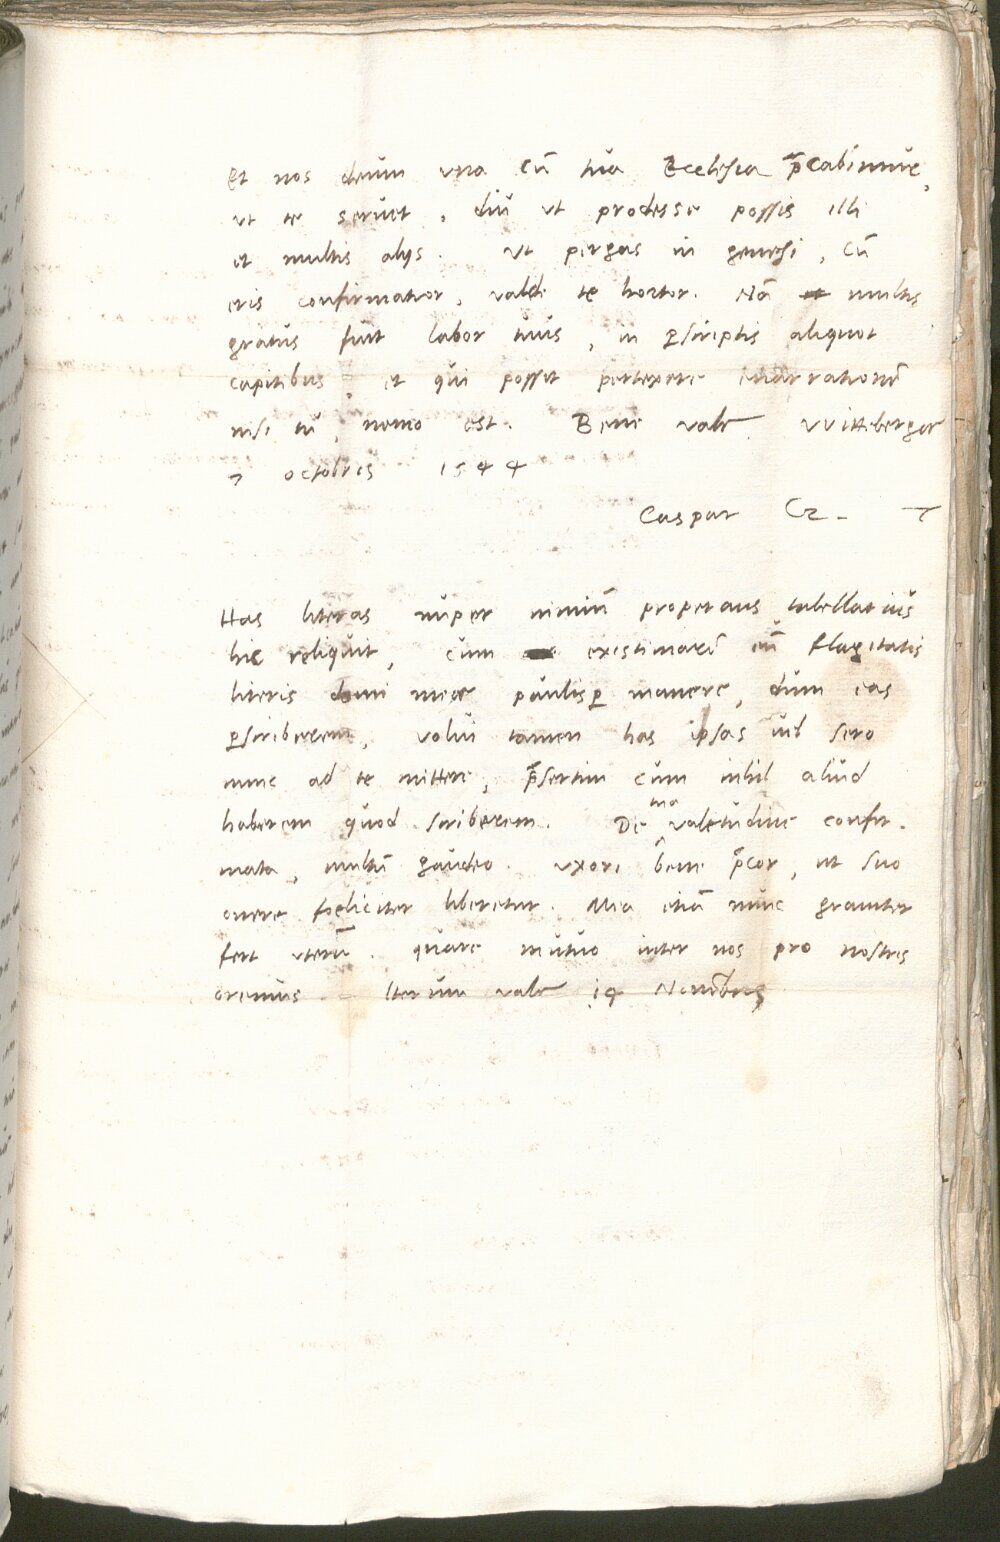 Et nos deum vna cū tua Ecclesia p̄cabimur,
vt te seruet, diu vt prodesse possis illi
et multis alijs. Vt pergas in genesi, cū
eris confirmatior, valde te hortor. Nā multis
gratus fuit labor tuus, in ꝑscriptis aliquot
capitibus et qui possit pertexere enarrationē
nisi tu, nemo est. Bene vale VVittebergae
7 octobris 1544
Caspar Cr.
Has literas nuper nimiū properans tabellarius
hic reliquit, cum existimarē eū flagitatis
literis domi meae paulisꝑ manere, dum eas
ꝑscriberem, volui tamen has ipsas vel sero
nunc ad te mittere, p̄sertim cum nihil aliud
haberem quod scriberem. De tua valetudine confir-
mata, multū gaudeo. vxori bene p̄cor, ut suo
onere foeliciter liberetur. Mea etiā nunc grauiter
fert vterū. quare mutuo inter nos pro nostris
oremus. Iterum vale 14 Nouēbris